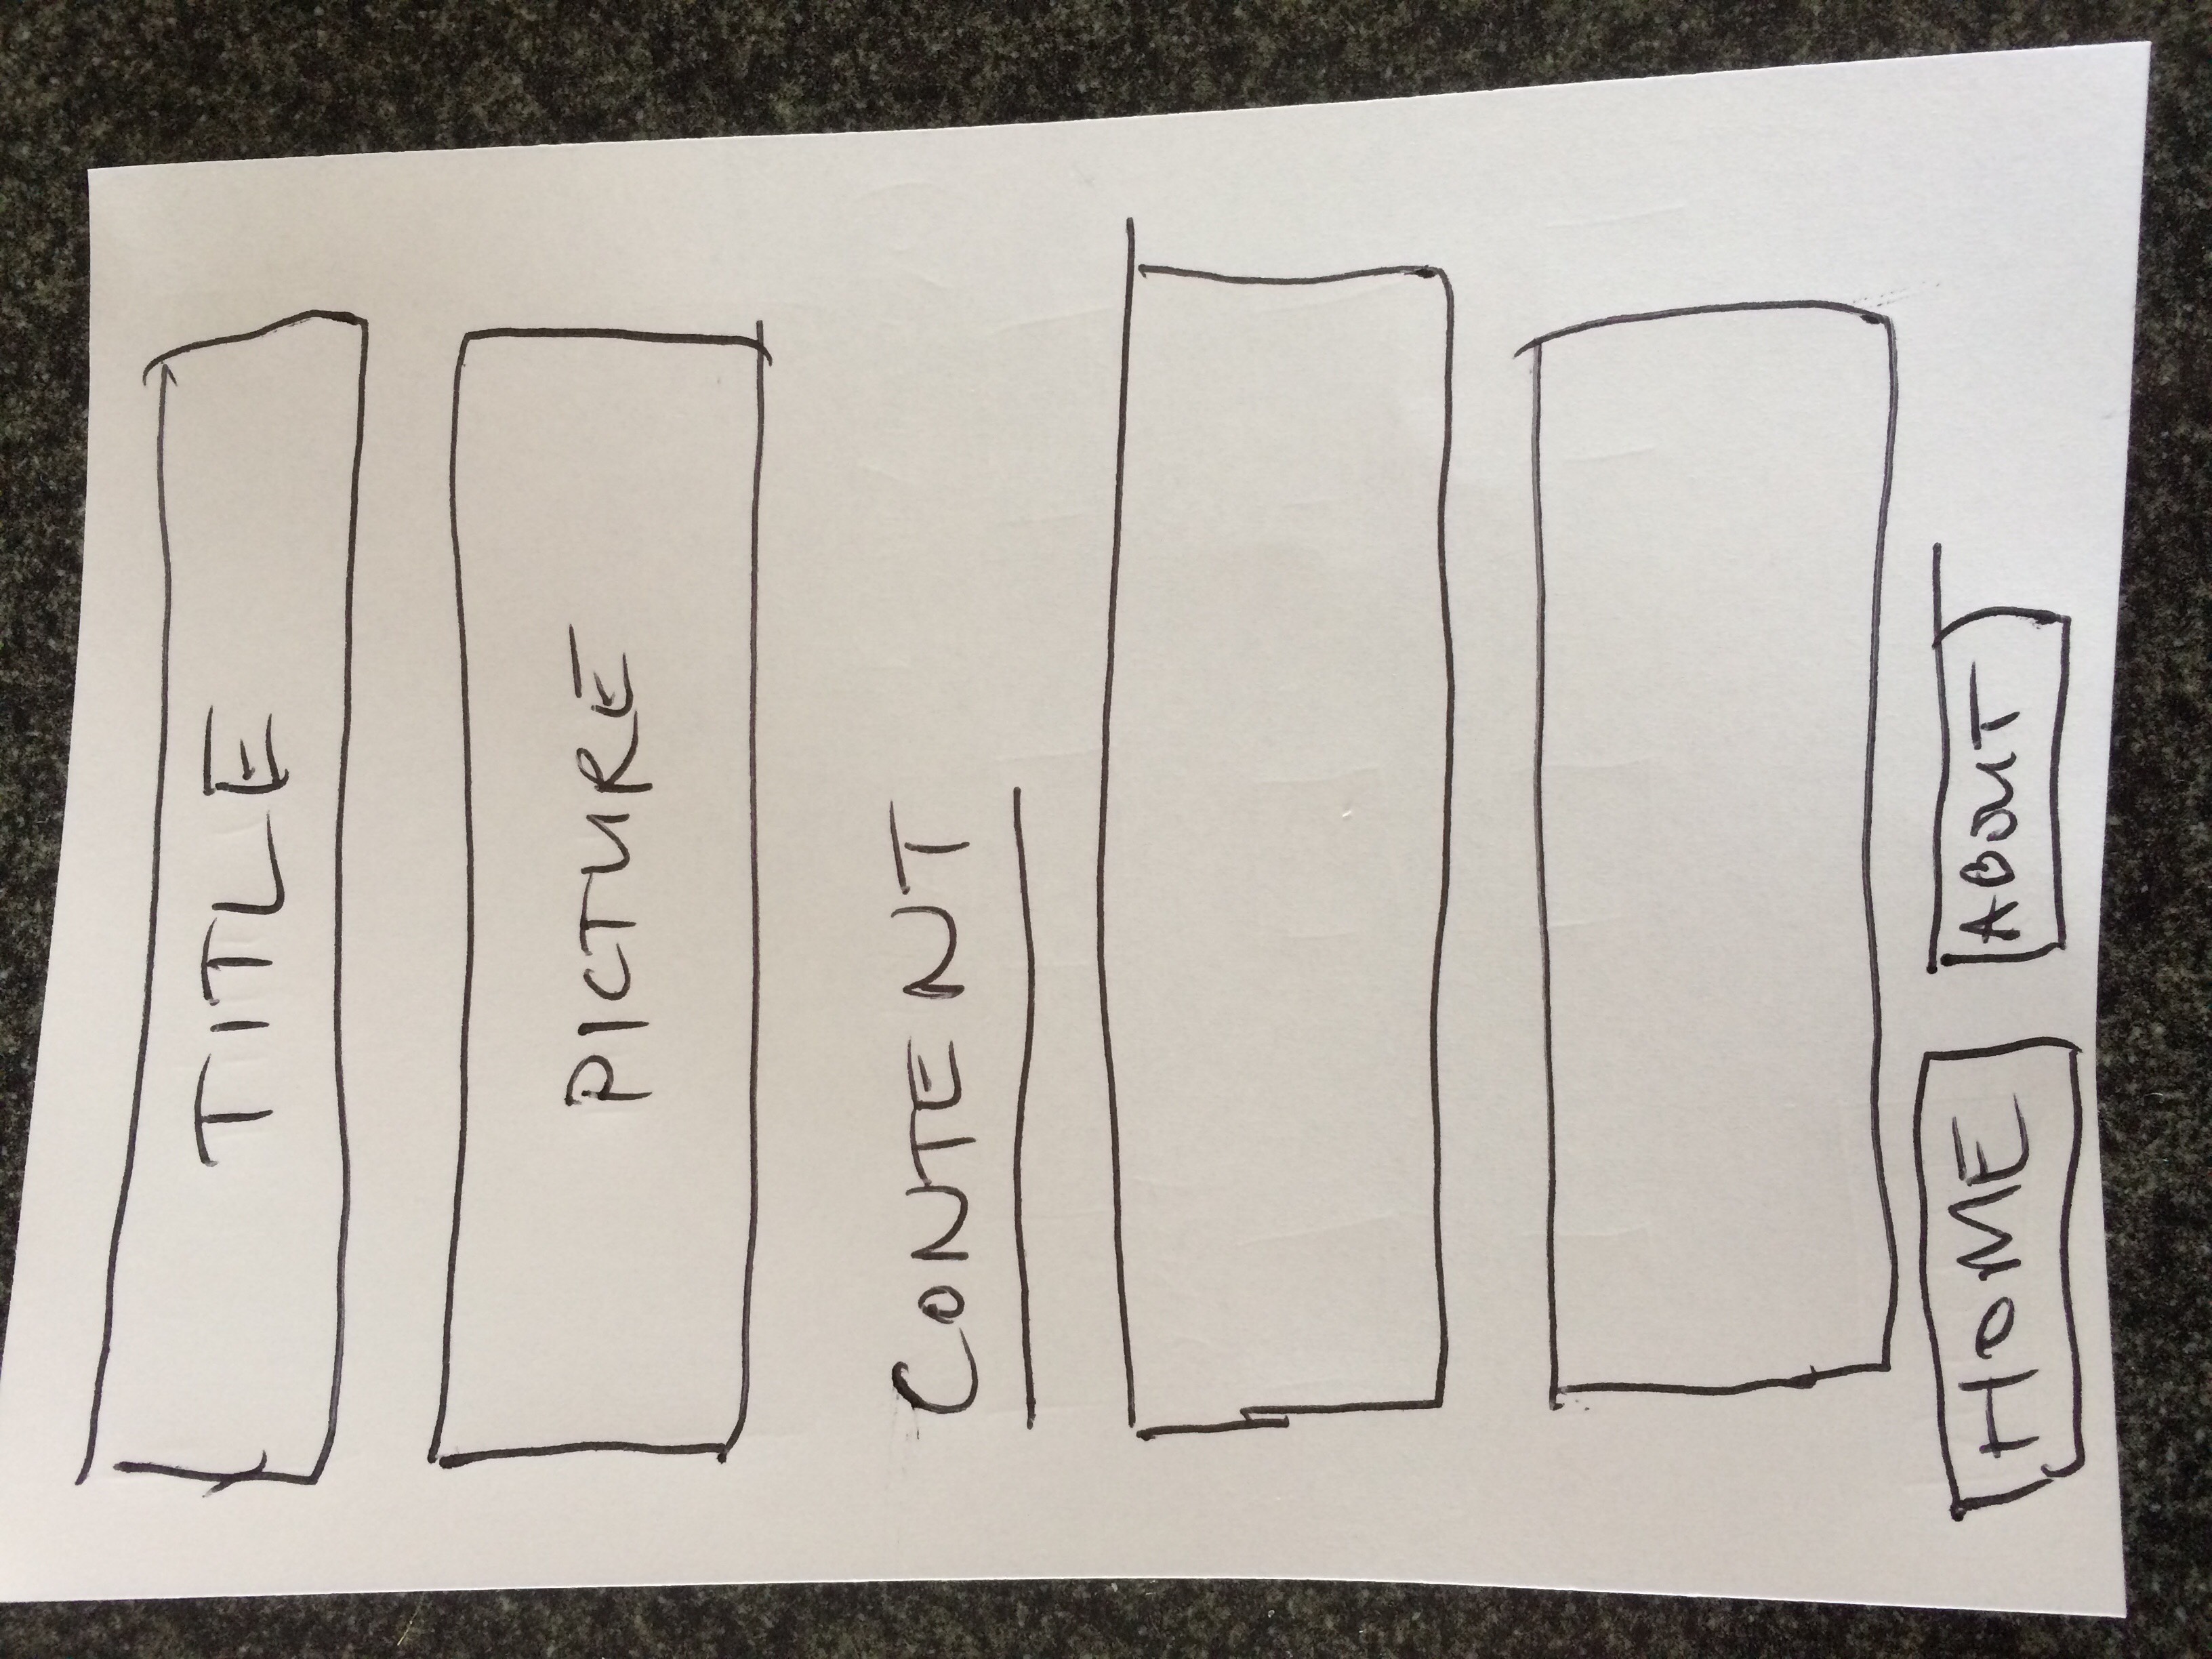 TITLE
PICTURE
CONTENT
HOME ABOUT